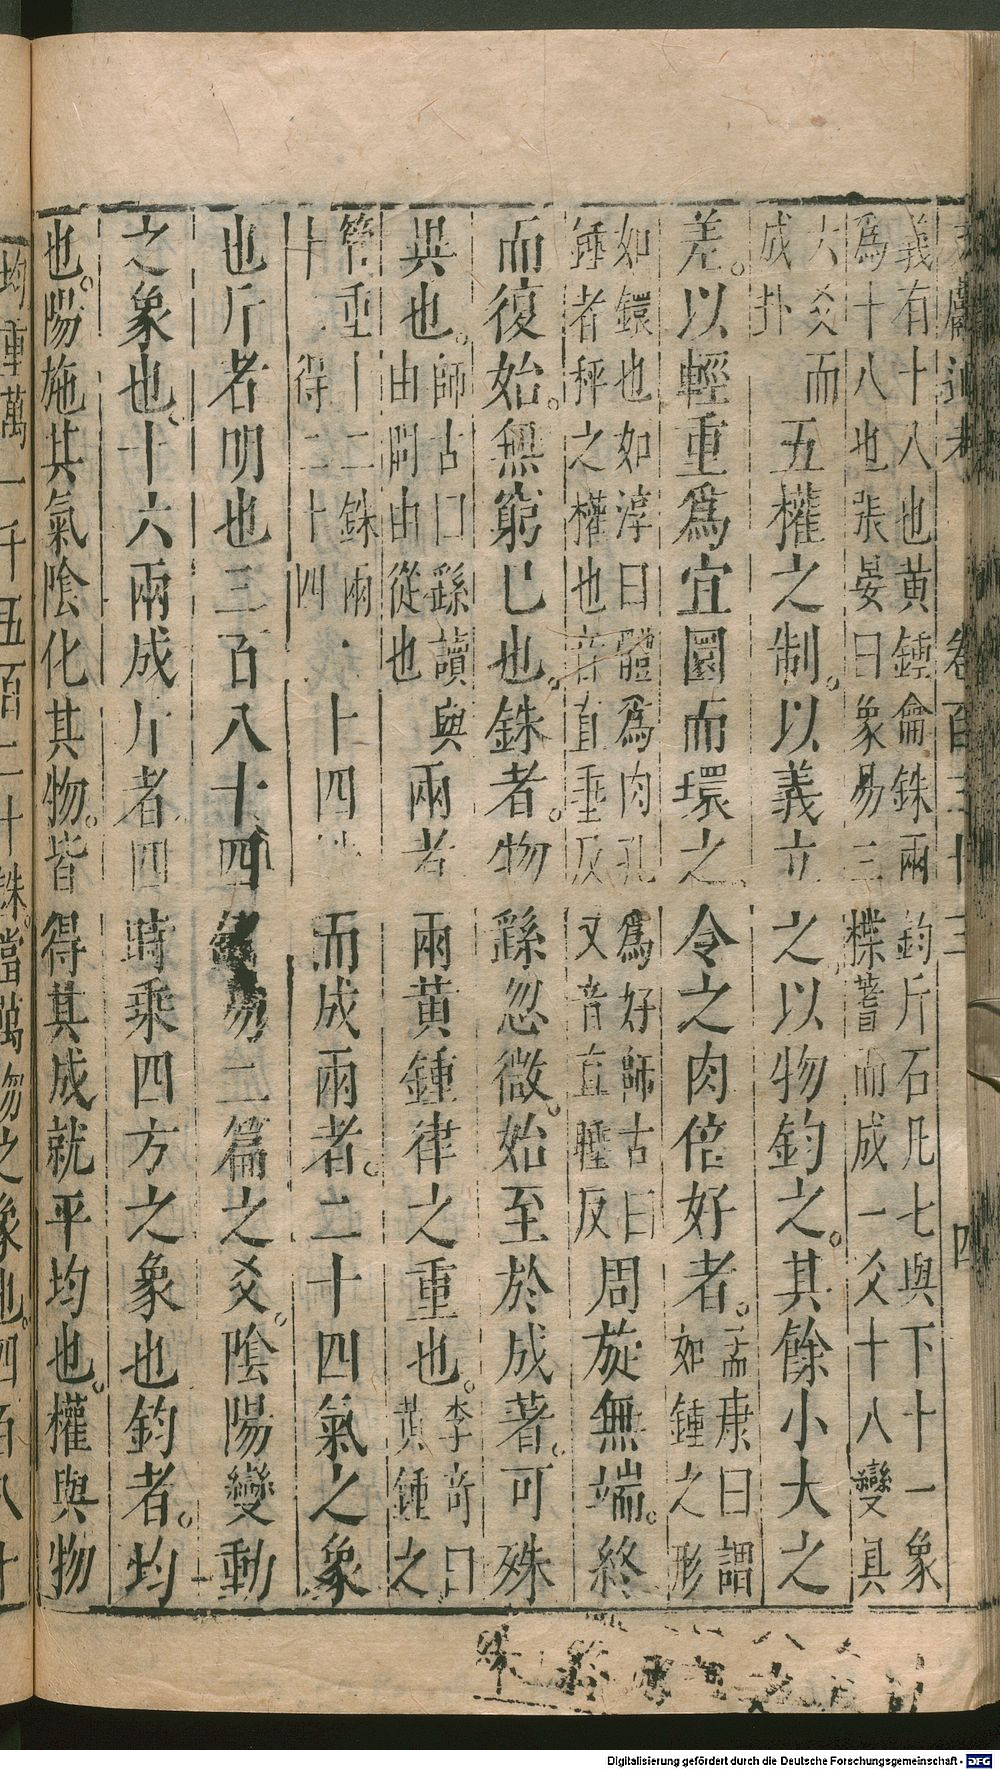 文獻通考 卷百三十三 四
義有十八也黃鍾龠銖兩鈞斤石凡七與下十一象
爲十八也張晏曰象易三揲蓍而成一爻十八變具
六爻而
成卦
五權之制。以義立之以物鈞之。其餘小大之
差。以輕重爲宜圜而環之令之肉倍好者。
孟康曰謂
如鍾之形
如鐶也如淳曰體爲肉孔爲好師古曰
錘者秤之權也音直垂反又音直睡反
周旋無端。終
而復始。無窮已也。銖者。物繇忽微。始至於成著。可殊
異也。
師古曰繇讀與
由同由從也
兩者兩黃鍾律之重也。
李奇曰
黃鍾之
管重十二銖兩
十二得二十四
十四而成兩者。二十四氣之象
也斤者明也三百八十四易二篇之爻。陰陽變動
之象也十六兩成斤者四時乘四方之象也鈞者。均
也。陽施其氣陰化其物。皆得其成就平均也。權與物
均重萬一千五百二十銖。當萬物之象也。四百八十
Digitalisierung gefördert durch die Deutsche Forschungsgemeinschaft - DFG